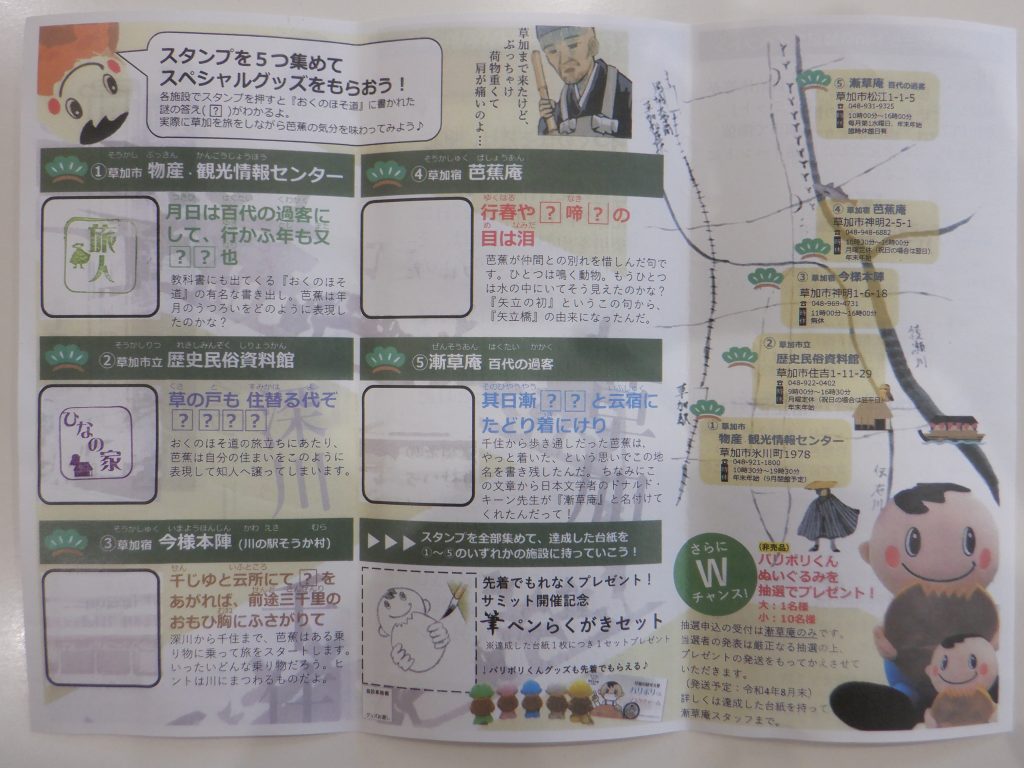 スタンプを５つ集めて
スペシャルグッズをもらおう！
各施設でスタンプを押すと『おくのほそ道』に書かれた
謎の答え(？)がわかるよ。
実際に草加を旅をしながら芭蕉の気分を味わってみよう♪
草加まで来たけど、
ぶっちゃけ
荷物重くて
肩が痛いのよ…
そうかし ぶっさん かんこうじょうほう
①草加市 物産・観光情報センター
旅人
つきひ はくたい くわかく
月日は百代の過客に
して、行かふ年も又
？？也
教科書にも出てくる『おくのほそ
道』の有名な書き出し。芭蕉は年
月のうつろいをどのように表現し
たのかな？
そうかしりつ れきしみんぞく しりょうかん
②草加市立 歴史民俗資料館
ひなの家
くさ と すみかは よ
草の戸も 住替る代ぞ
？？？？
おくのほそ道の旅立ちにあたり、
芭蕉は自分の住まいをこのように
表現して知人へ譲ってしまいます。
そうかしゅく いまようほんじん かわ えき むら
③草加宿 今様本陣 (川の駅そうか村)
せん いふところ
千じゆと云所にて？を
あがれば、前途三千里の
おもひ胸にふさがりて
深川から千住まで、芭蕉はある乗
り物に乗って旅をスタートします。
いったいどんな乗り物だろう。ヒ
ントは川にまつわるものだよ。
そうかしゅく ばしょうあん
④草加宿 芭蕉庵
ゆくはる なき
行春や？啼？の
め なみだ
目は泪
芭蕉が仲間との別れを惜しんだ句で
す。ひとつは鳴く動物。もうひとつ
は水の中にいてそう見えたのかな？
『矢立の初』というこの句から、
『矢立橋』の由来になったんだ。
ぜんそうあん はくたい かかく
⑤漸草庵 百代の過客
其日漸？？と云宿に
たどり着にけり
千住から歩き通しだった芭蕉は、
やっと着いた、という思いでこの地
名を書き残したんだ。ちなみにこ
の文章から日本文学者のドナルド・
キーン先生が『漸草庵』と名付けて
くれたんだって！
▶▶▶ スタンプを全部集めて、達成した台紙を
①～⑤のいずれかの施設に持っていこう！
先着でもれなくプレゼント！
サミット開催記念
筆ペンらくがきセット
※達成した台紙１枚につき１セットプレゼント
↓パリポリくんグッズも先着でもらえる♪
⑤ 漸草庵 百代の過客
草加市松江1-1-5
☎ 048-931-9325
10時00分～16時00分
毎月第1水曜日、年末年始
臨時休館日有
④ 草加宿 芭蕉庵
草加市神明2-5-1
☎ 048-948-6882
月曜定休（祝日の場合は翌日）
年末年始
③ 草加宿 今様本陣
草加市神明1-6-18
☎ 048-969-4731
11時00分～16時00分
無休
② 草加市立
歴史民俗資料館
草加市住吉1-11-29
☎ 048-922-0402
9時00分～16時30分
月曜定休（祝日の場合は翌平日）
年末年始
① 草加市
物産 観光情報センター
草加市氷川町1978
☎ 048-921-1800
10時30分～19時30分
年末年始（9月閉館予定）
草加駅
綾瀬川
伝右川
さらに
W
チャンス！
(非売品)
パリポリくん
ぬいぐるみを
抽選でプレゼント！
大：1名様
小：10名様
抽選申込の受付は漸草庵のみです。
当選者の発表は厳正なる抽選の上、
プレゼントの発送をもってかえさせて
いただきます。
（発送予定：令和4年8月末）
詳しくは達成した台紙を持って
漸草庵スタッフまで。